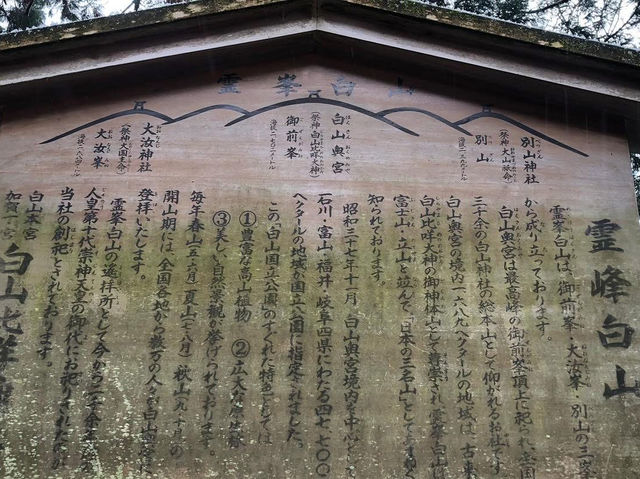 霊峯白山
別山神社
(祭神大山祇命)
別山
白山奥宮
(祭神白山比咩大神)
御前峯
大汝神社
(祭神大国主命)
大汝峯
霊峰白山
霊峯白山は、御前峯・大汝峯・別山の三峯
から成り立っております。
白山奥宮は最高峰の御前峯頂上に祀られ、全国
三千余の白山神社の総本宮として仰がれるお社です
白山奥宮の境内二六八九ヘクタールの地域は、古来
白山比咩大神の御神体山として尊崇され、霊峯白山は
富士山・立山と並んで「日本の三名山」としてよく
知られております。
昭和三十七年十一月、白山奥宮境内を中心として
石川・富山・福井・岐阜四県にわたる四七、七〇〇
ヘクタールの地域が国立公園に指定されました。
この「白山国立公園」のすぐれた特色としては
①豊富な高山植物 ②広大な原生林
③美しい自然景観が挙げられております。
毎年春山(五・六月)夏山(七・八月)秋山(九・十月)の
開山期には、全国各地から数万の人々が白山奥宮に
登拝いたします。
霊峯白山の遙拝所として今から二千余年
人皇第十代崇神天皇の御代にお祀りされたのが
当社の創祀とされております。
白山本宮
加賀一ノ宮
白山比咩